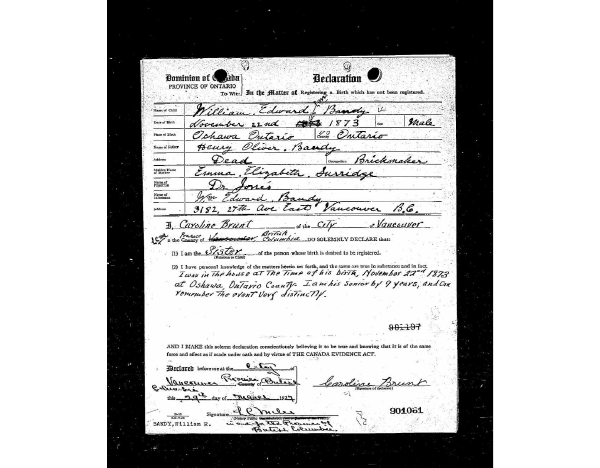 Dominion of Canada
PROVINCE OF ONTARIO
To Wit:
Declaration
In the Matter of Registering a Birth which has not been registered.
Name of Child William Edward Bandy
Date of Birth November 22nd 1873 Sex Male
Place of Birth Oshawa Ontario Ontario
Name of Father Henry Oliver Bandy
Address Dead Occupation Brickmaker
Maiden Name of Mother Emma Elizabeth Surridge
Name of Physician Dr Jones
Name of Informant Wm Edward Bandy
Address 3182, 27th Ave East Vancouver B.C.
I, Caroline Brunt of the City of Vancouver
in the County of Vancouver British Columbia DO SOLEMNLY DECLARE that:
(1) I am the Sister of the person whose birth is desired to be registered.
(Relation to Child)
(2) I have personal knowledge of the matters herein set forth, and the same are true in substance and in fact.
I was in the house at the time of his birth, November 22nd 1873
at Oshawa, Ontario County. I am his Senior by 9 years, and Can
remember the event Very distinctly.
901197
AND I MAKE this solemn declaration conscientiously believing it to be true and knowing that it is of the same
force and effect as if made under oath and by virtue of THE CANADA EVIDENCE ACT.
Declared before me at the City
of Vancouver Province British
Columbia
this 29th day of March 1927
Caroline Brunt
(Signature of Declarant)
Signature
in and for the Province of
British Columbia
901061
BANDY, William E.